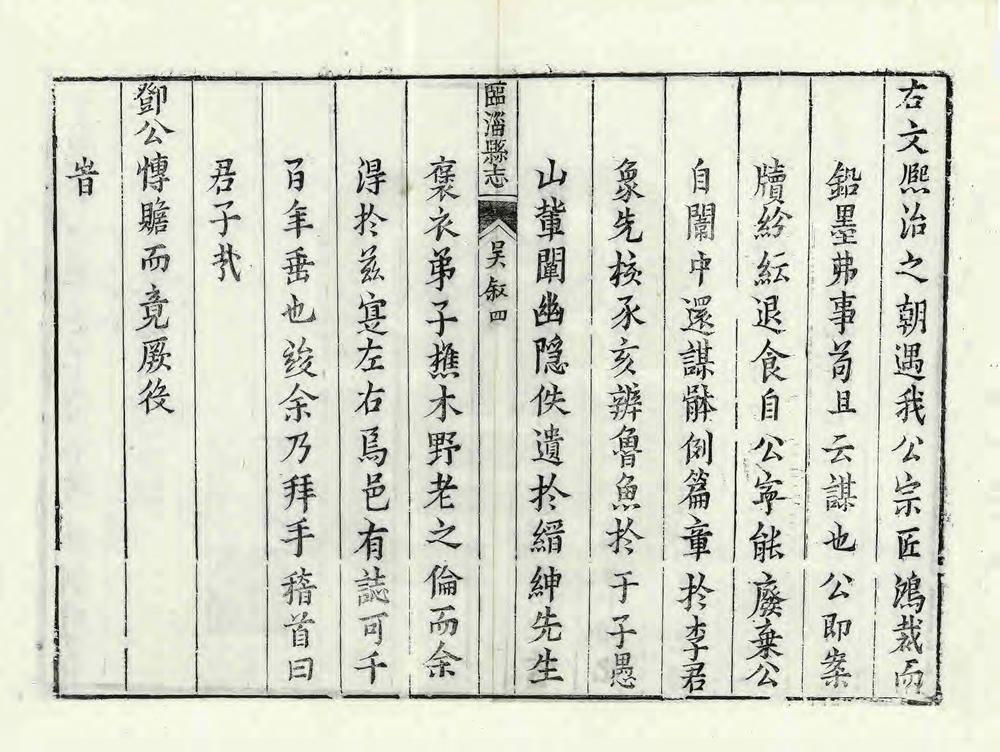 右文熈治之朝遇我公宗匠鴻裁而
鉛墨弗事茍且云謀也公即案
牘紛紜退食自公寧能廢棄公
自闈中還謀骵例篇章扵李君
象先核豕亥辨魯魚扵于子愚
山輩闡幽隱佚遺扵縉紳先生
臨淄縣志
吴叙四
褒衣弟子樵木野老之倫而余
淂扵兹寔左右焉邑有誌可千
百年垂也竣余乃拜手稽首曰
君子㢤
鄧公慱贍而竟厥役
旹